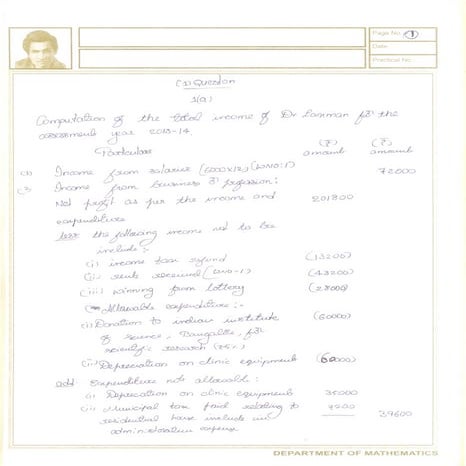 Page No. 1
Date
Practical No.
(1) Question
1(a)
Computation of the total income of Dr Lamman for the
assessment year 2013-14.
Particulars (₹) amount (₹) amount
(1) Income from salaries (6000x12) (W.N:1) 72000
(2) Income from business or profession:
Net profit as per the income and 201800
expenditure
Less the following income not to be
include:-
(i) income tax refund (13200)
(ii) rent received (43200)
(iii) winning from lottery (28000)
Allowable expenditure:-
(i) Donation to Indian institute (60000)
of science, Bangalore, for
scientific research
(ii) Depreciation on clinic equipments
add Expenditure not allowable:
(i) Depreciation on clinic equipments 35000
(ii) Municipal tax paid relating to
residential house include in 39600
administration expense
DEPARTMENT OF MATHEMATICS